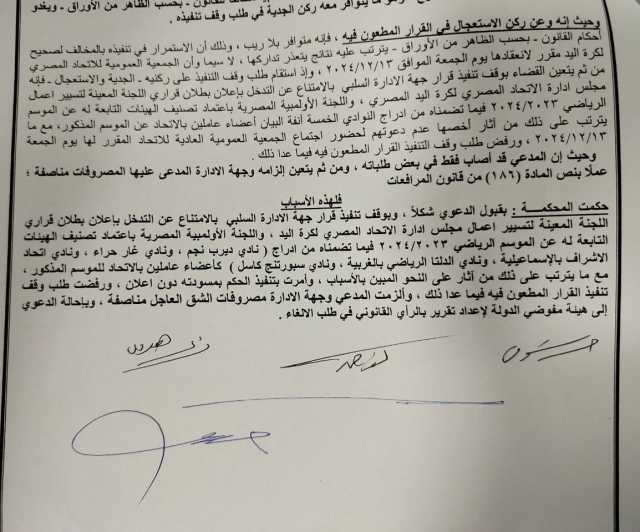 ما يتوافر معه ركن الجدية في طلب وقف تنفيذه .
وحيث إنه وعن ركن الاستعجال في القرار المطعون فيه ، فإنه متوافر بلا ريب ، وذلك أن الاستمرار في تنفيذه بالمخالف لصحيح
أحكام القانون - بحسب الظاهر من الأوراق - يترتب عليه نتائج يتعذر تداركها ، لا سيما وأن الجمعية العمومية للاتحاد المصري
لكرة اليد مقرر لانعقادها يوم الجمعة الموافق ٢٠٢٤/١٢/١٣ ، وإذ استقام طلب وقف التنفيذ على ركنيه - الجدية والاستعجال - فإنه
من ثم يتعين القضاء بوقف تنفيذ قرار جهة الإدارة السلبي بالامتناع عن التدخل بإعلان بطلان قراري اللجنة المعينة لتسيير اعمال
مجلس ادارة الاتحاد المصري لكرة اليد المصري ، واللجنة الأولمبية المصرية باعتماد تصنيف الهيئات التابعة له عن الموسم
الرياضي ٢٠٢٤/٢٠٢٣ فيما تضمناه من ادراج النوادي الخمسة أنفة البيان أعضاء عاملين بالاتحاد عن الموسم المذكور، مع ما
يترتب على ذلك من آثار أخصها عدم دعوتهم لحضور اجتماع الجمعية العمومية العادية للاتحاد المقرر لها يوم الجمعة
٢٠٢٤/١٢/١٣ ، ورفض طلب وقف التنفيذ القرار المطعون فيه فيما عدا ذلك .
وحيث إن المدعي قد أصاب فقط في بعض طلباته ، ومن ثم يتعين إلزامه وجهة الادارة المدعى عليها المصروفات مناصفة ؛
عملًا بنص المادة (١٨٦) من قانون المرافعات
فلهذه الأسباب
حكمت المحكمة : بقبول الدعوي شكلاً ، وبوقف تنفيذ قرار جهة الادارة السلبي بالامتناع عن التدخل بإعلان بطلان قراري
اللجنة المعينة لتسيير اعمال مجلس ادارة الاتحاد المصري لكرة اليد ، واللجنة الأولمبية المصرية باعتماد تصنيف الهيئات
التابعة له عن الموسم الرياضي ٢٠٢٤/٢٠٢٣ فيما تضمناه من ادراج ( نادي ديرب نجم ، ونادي غار حراء ، ونادي اتحاد
الاشراف بالإسماعيلية ، ونادي الدلتا الرياضي بالغربية ، ونادي سبورتنج كاسل ) كأعضاء عاملين بالاتحاد للموسم المذكور ،
مع ما يترتب على ذلك من آثار على النحو المبين بالأسباب ، وأمرت بتنفيذ الحكم بمسودته دون اعلان ، ورفضت طلب وقف
تنفيذ القرار المطعون فيه فيما عدا ذلك ، وألزمت المدعي وجهة الادارة مصروفات الشق العاجل مناصفة ، وبإحالة الدعوي
إلى هيئة مفوضي الدولة لإعداد تقرير بالرأي القانوني في طلب الالغاء .